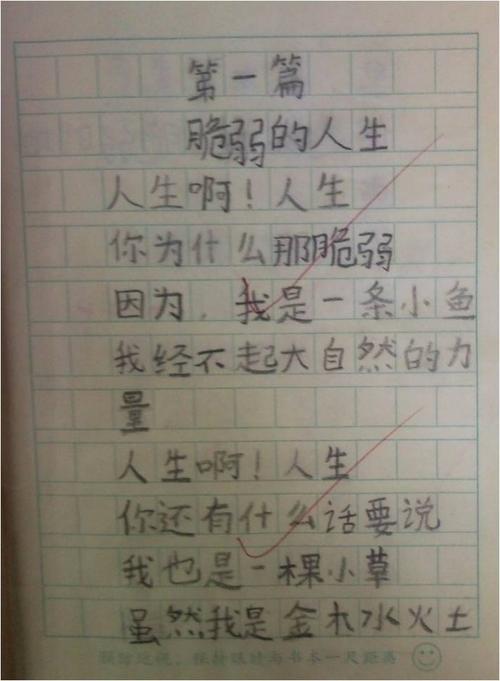 第一篇
脆弱的人生
人生啊！人生
你为什么那脆弱
因为，我是一条小鱼
我经不起大自然的力
量
人生啊！人生
你还有什么话要说
我也是一棵小草
虽然我是金木水火土
预防近视，保持眼睛与书本一尺距离